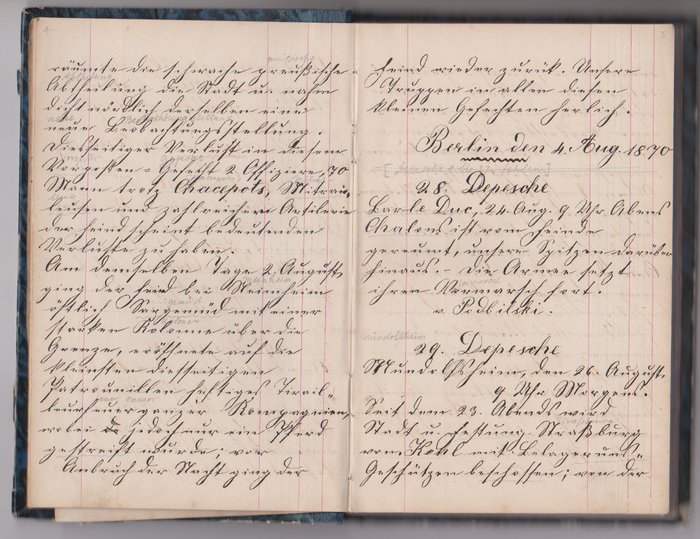 räumte die schwache preußische
Abtheilung die Stadt u. nahm
dicht nördlich derselben eine
neue Beobachtungsstellung.
Diesseitiger Verlust in diesem
Vorposten-Gefecht 2 Offiziere, 70
Mann trotz Chacepots, Mitrail-
leusen und zahlreicher Artilerie
der feind scheint bedeutenden
Verluste zu haben.
Am demselben Tage 2. August,
ging der feind bei Reinheim
östlich Sargemünd mit einer
starken Kolonne über die
Grenze, eröffnete auf die
kleinsten diesseitigen
Patrouillen heftiges Tirail-
leurfeuer ganzer Kompagnien,
wobei jedoch nur ein Pferd
gestreift wurde; vor
Anbruch der Nacht ging der
5
Feind wieder zurük. Unsere
Truppen in allen diesen
kleinen Gefechten herlich.
Berlin den 4. Aug. 1870
28. Depesche
Bar le Duc, 24. Aug. 9 Uhr Abens
Chalons ist vom feinde
gereumt, unsere Spitzen darüber
hinaus. - Die Armee setzt
ihren Vormarsch fort.
v. Podbilski.
Mundolsheim
29. Depesche
Mundolfsheim, den 26. August.
9 Uhr Morgens.
Seit dem 23. Abends wird
Stadt u. Festung Straßburg
von Kehl mit Belagerungs-
Geschützen beschossen; von der